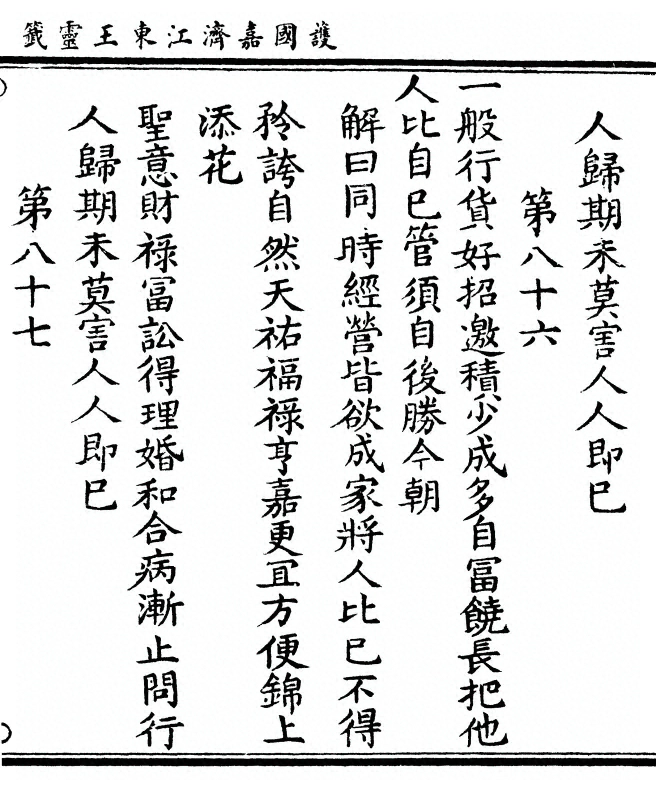 護國嘉濟江東王靈籤
人歸期未莫害人人即巳
第八十六
一般行貨好招邀積少成多自冨饒長把他
人比自巳管須自後勝今朝
解曰同時經營皆欲成家將人比巳不得
矜誇自然天祐福祿亨嘉更冝方便錦上
添花
聖意財祿冨訟得理婚和合病漸止問行
人歸期未莫害人人即巳
第八十七